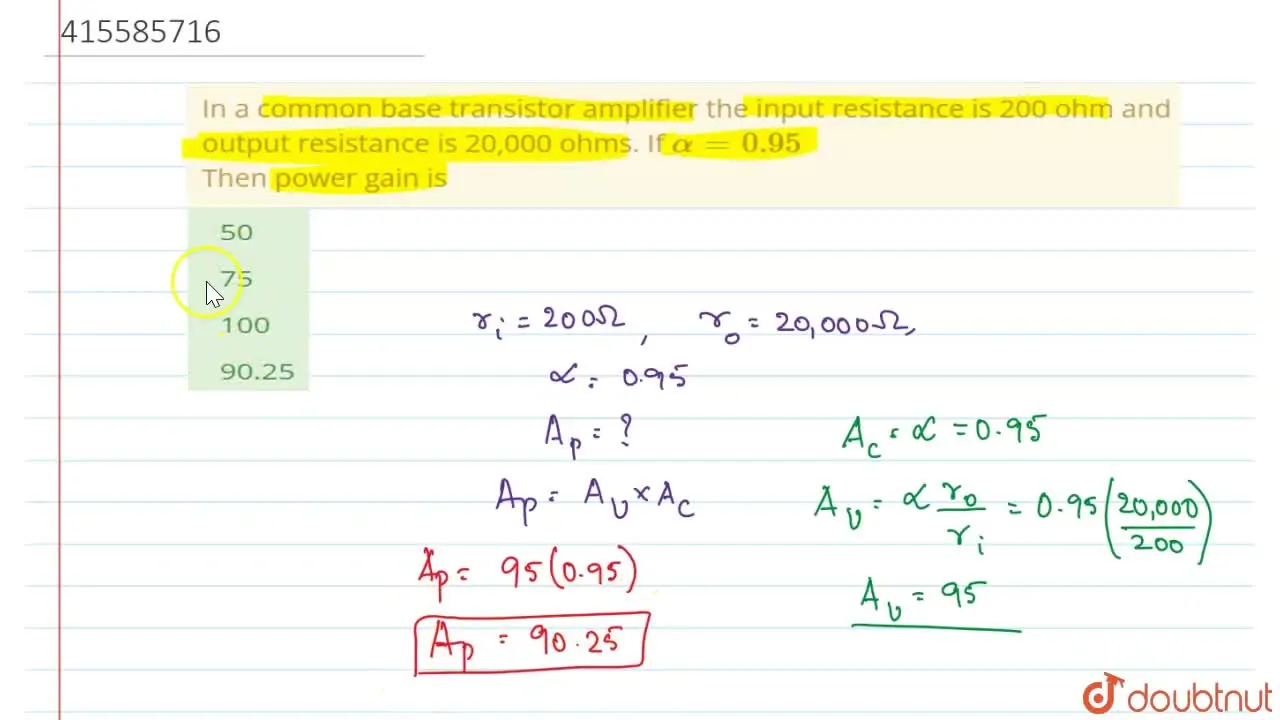 415585716
In a common base transistor amplifier the input resistance is 200 ohm and
output resistance is 20,000 ohms. If α = 0.95
Then power gain is
50
75
100
90.25
r_i = 200Ω , r_o = 20,000Ω,
α = 0.95
A_p = ?
A_p = A_v × A_c
A_p = 95(0.95)
A_p = 90.25
A_c = α = 0.95
A_v = α r_o/r_i = 0.95(20,000/200)
A_v = 95
doubtnut